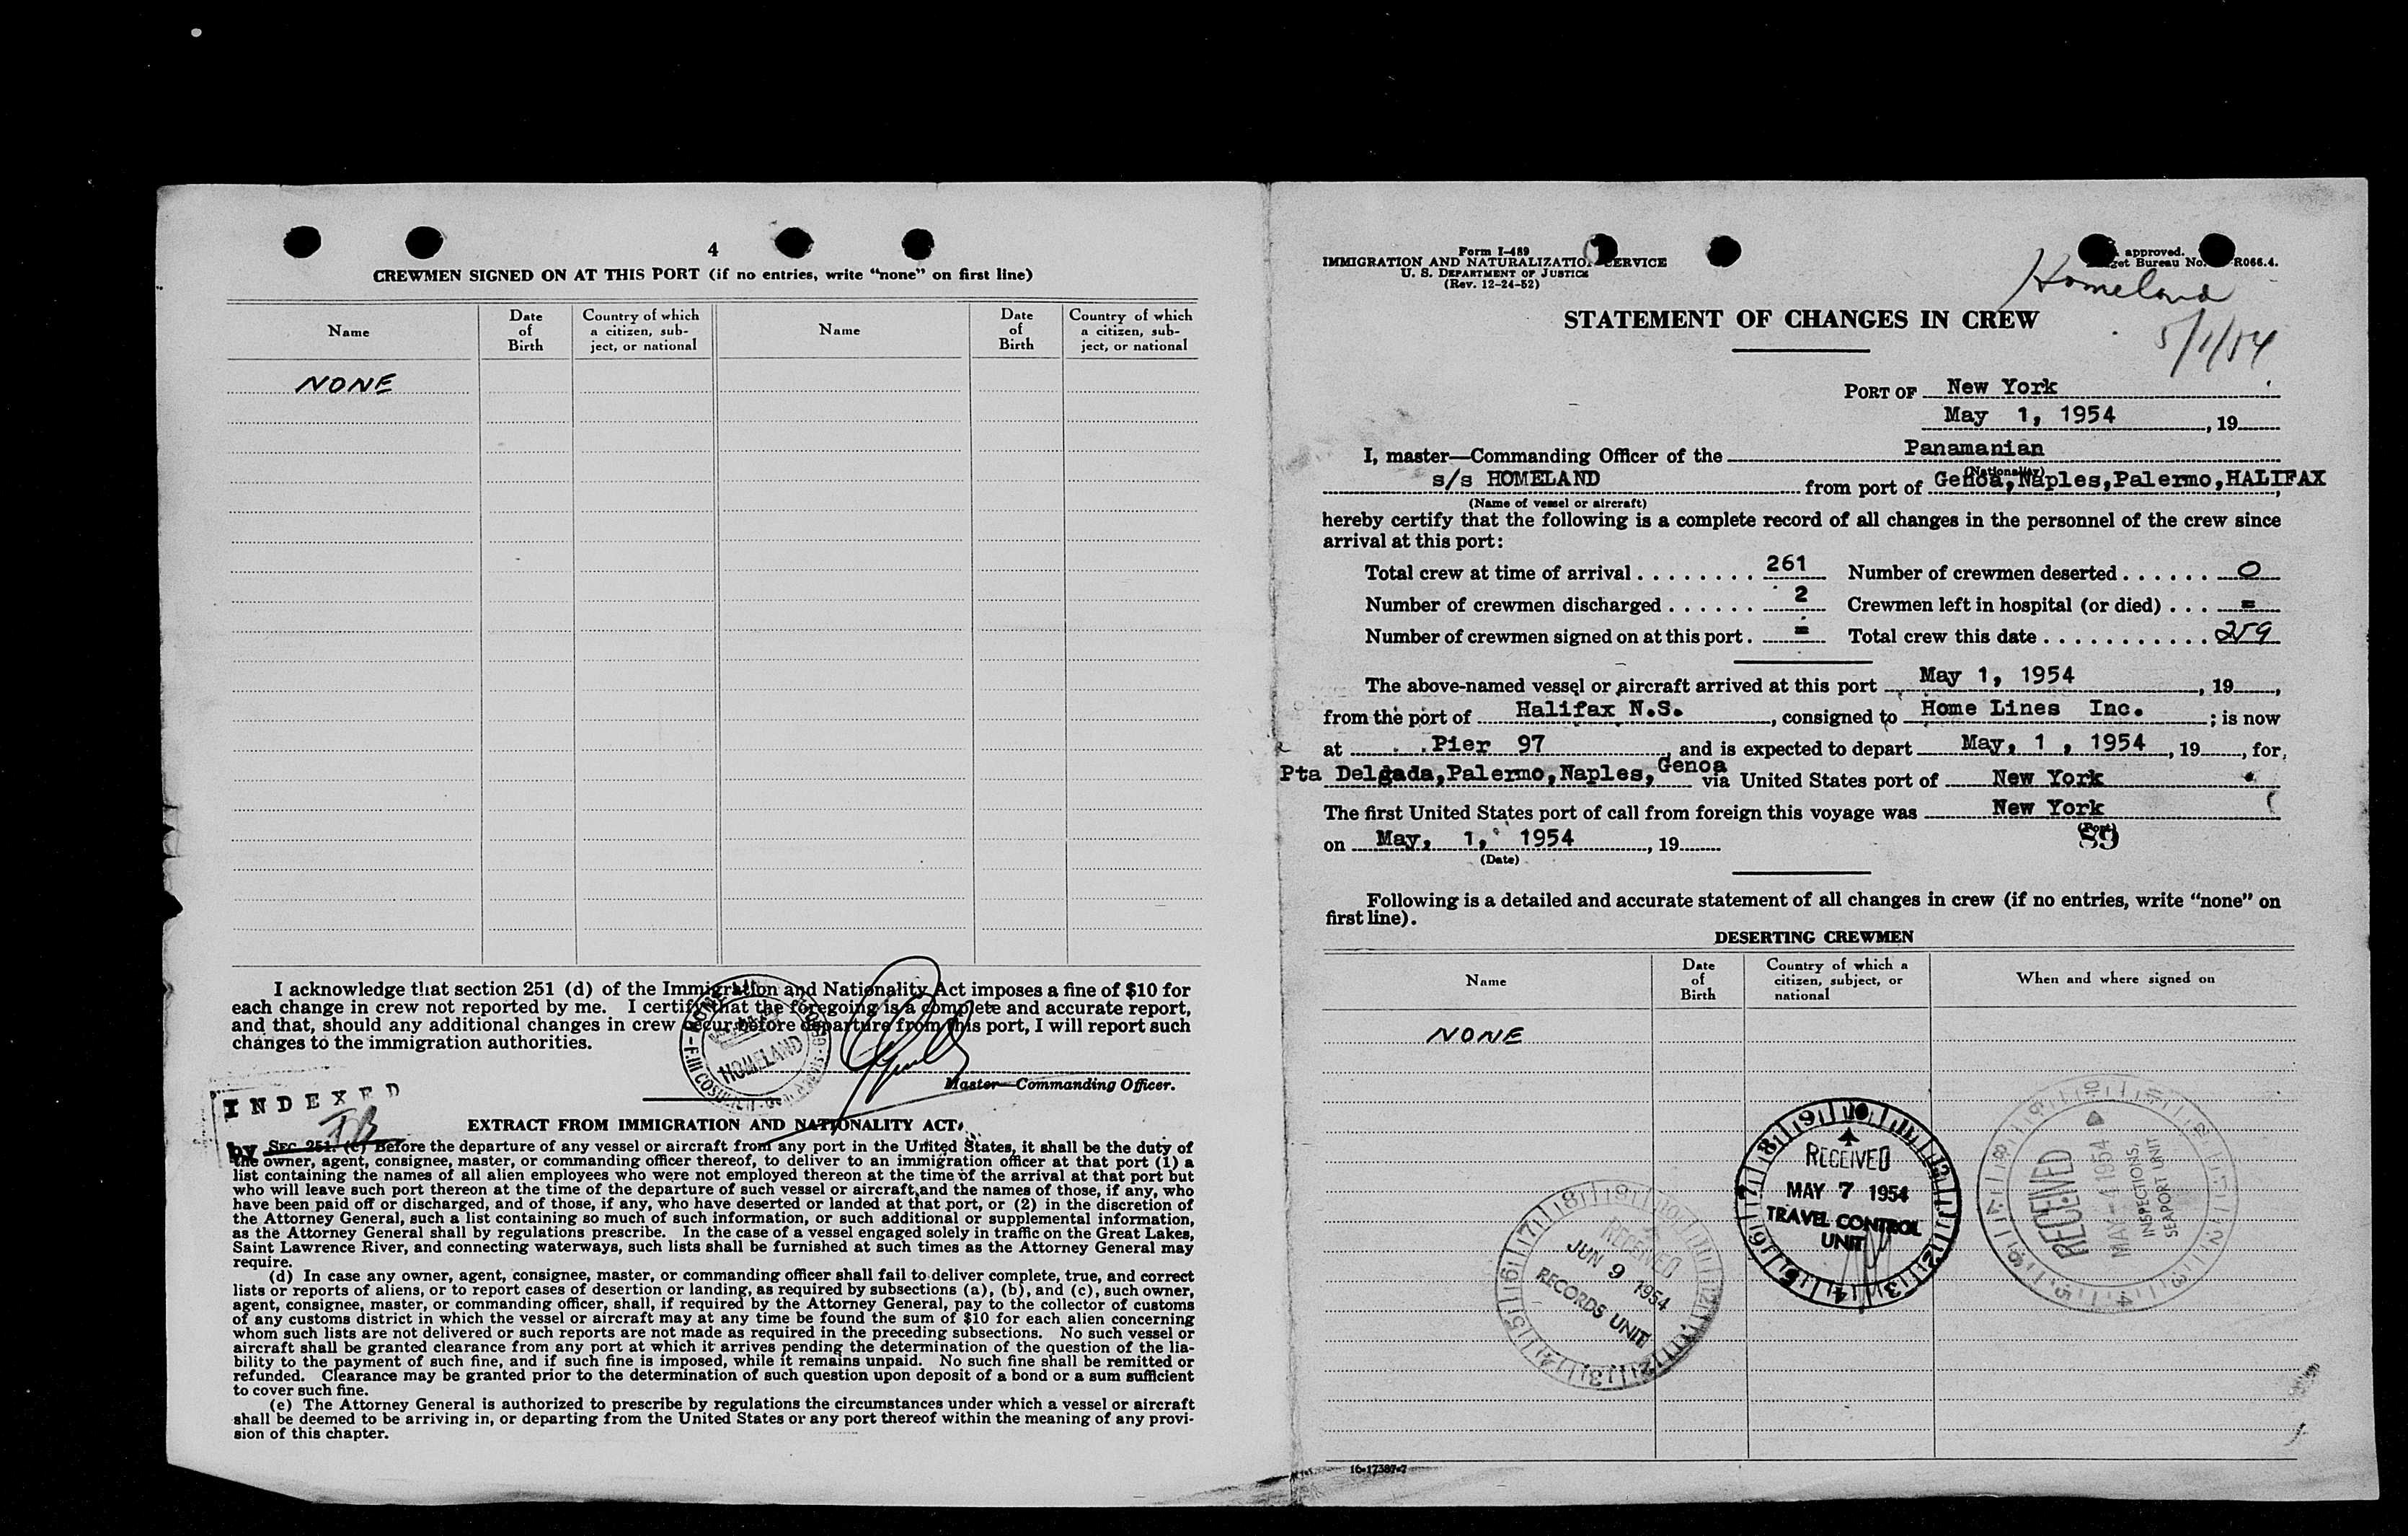 4
CREWMEN SIGNED ON AT THIS PORT (if no entries, write “none” on first line)
Name
Date of Birth
Country of which a citizen, subject, or national
Name
Date of Birth
Country of which a citizen, subject, or national
NONE
I acknowledge that section 251 (d) of the Immigration and Nationality Act imposes a fine of $10 for
each change in crew not reported by me. I certify that the foregoing is a complete and accurate report,
and that, should any additional changes in crew occur before departure from this port, I will report such
changes to the immigration authorities.
HOMELAND
Master—Commanding Officer.
INDEXED
by
EXTRACT FROM IMMIGRATION AND NATIONALITY ACT
SEC. 251. (c) Before the departure of any vessel or aircraft from any port in the United States, it shall be the duty of
the owner, agent, consignee, master, or commanding officer thereof, to deliver to an immigration officer at that port (1) a
list containing the names of all alien employees who were not employed thereon at the time of the arrival at that port but
who will leave such port thereon at the time of the departure of such vessel or aircraft and the names of those, if any, who
have been paid off or discharged, and of those, if any, who have deserted or landed at that port, or (2) in the discretion of
the Attorney General, such a list containing so much of such information, or such additional or supplemental information,
as the Attorney General shall by regulations prescribe. In the case of a vessel engaged solely in traffic on the Great Lakes,
Saint Lawrence River, and connecting waterways, such lists shall be furnished at such times as the Attorney General may
require.
(d) In case any owner, agent, consignee, master, or commanding officer shall fail to deliver complete, true, and correct
lists or reports of aliens, or to report cases of desertion or landing, as required by subsections (a), (b), and (c), such owner,
agent, consignee, master, or commanding officer, shall, if required by the Attorney General, pay to the collector of customs
of any customs district in which the vessel or aircraft may at any time be found the sum of $10 for each alien concerning
whom such lists are not delivered or such reports are not made as required in the preceding subsections. No such vessel or
aircraft shall be granted clearance from any port at which it arrives pending the determination of the question of the lia-
bility to the payment of such fine, and if such fine is imposed, while it remains unpaid. No such fine shall be remitted or
refunded. Clearance may be granted prior to the determination of such question upon deposit of a bond or a sum sufficient
to cover such fine.
(e) The Attorney General is authorized to prescribe by regulations the circumstances under which a vessel or aircraft
shall be deemed to be arriving in, or departing from the United States or any port thereof within the meaning of any provi-
sion of this chapter.
Form I-489
IMMIGRATION AND NATURALIZATION SERVICE
U. S. DEPARTMENT OF JUSTICE
(Rev. 12-24-52)
approved.
Bureau No. R066.4.
Homeland
5/1/54
STATEMENT OF CHANGES IN CREW
PORT OF New York
May 1, 1954, 19
I, master—Commanding Officer of the Panamanian
(Nationality)
s/s HOMELAND from port of Genoa,Naples,Palermo,HALIFAX
(Name of vessel or aircraft)
hereby certify that the following is a complete record of all changes in the personnel of the crew since
arrival at this port:
Total crew at time of arrival 261 Number of crewmen deserted 0
Number of crewmen discharged 2 Crewmen left in hospital (or died) =
Number of crewmen signed on at this port = Total crew this date 259
The above-named vessel or aircraft arrived at this port May 1, 1954, 19,
from the port of Halifax N.S., consigned to Home Lines Inc.; is now
at Pier 97, and is expected to depart May, 1, 1954, 19, for
Pta Delgada,Palermo,Naples,Genoa via United States port of New York
The first United States port of call from foreign this voyage was New York
(Port)
89
on May, 1, 1954, 19
(Date)
Following is a detailed and accurate statement of all changes in crew (if no entries, write “none” on
first line).
DESERTING CREWMEN
Name
Date of Birth
Country of which a citizen, subject, or national
When and where signed on
NONE
RECEIVED
MAY 7 1954
TRAVEL CONTROL
UNIT
RECEIVED
JUN 9 1954
RECORDS UNIT
RECEIVED
MAY - 4 1954
INSPECTIONS,
SEAPORT UNIT
16-17387-7